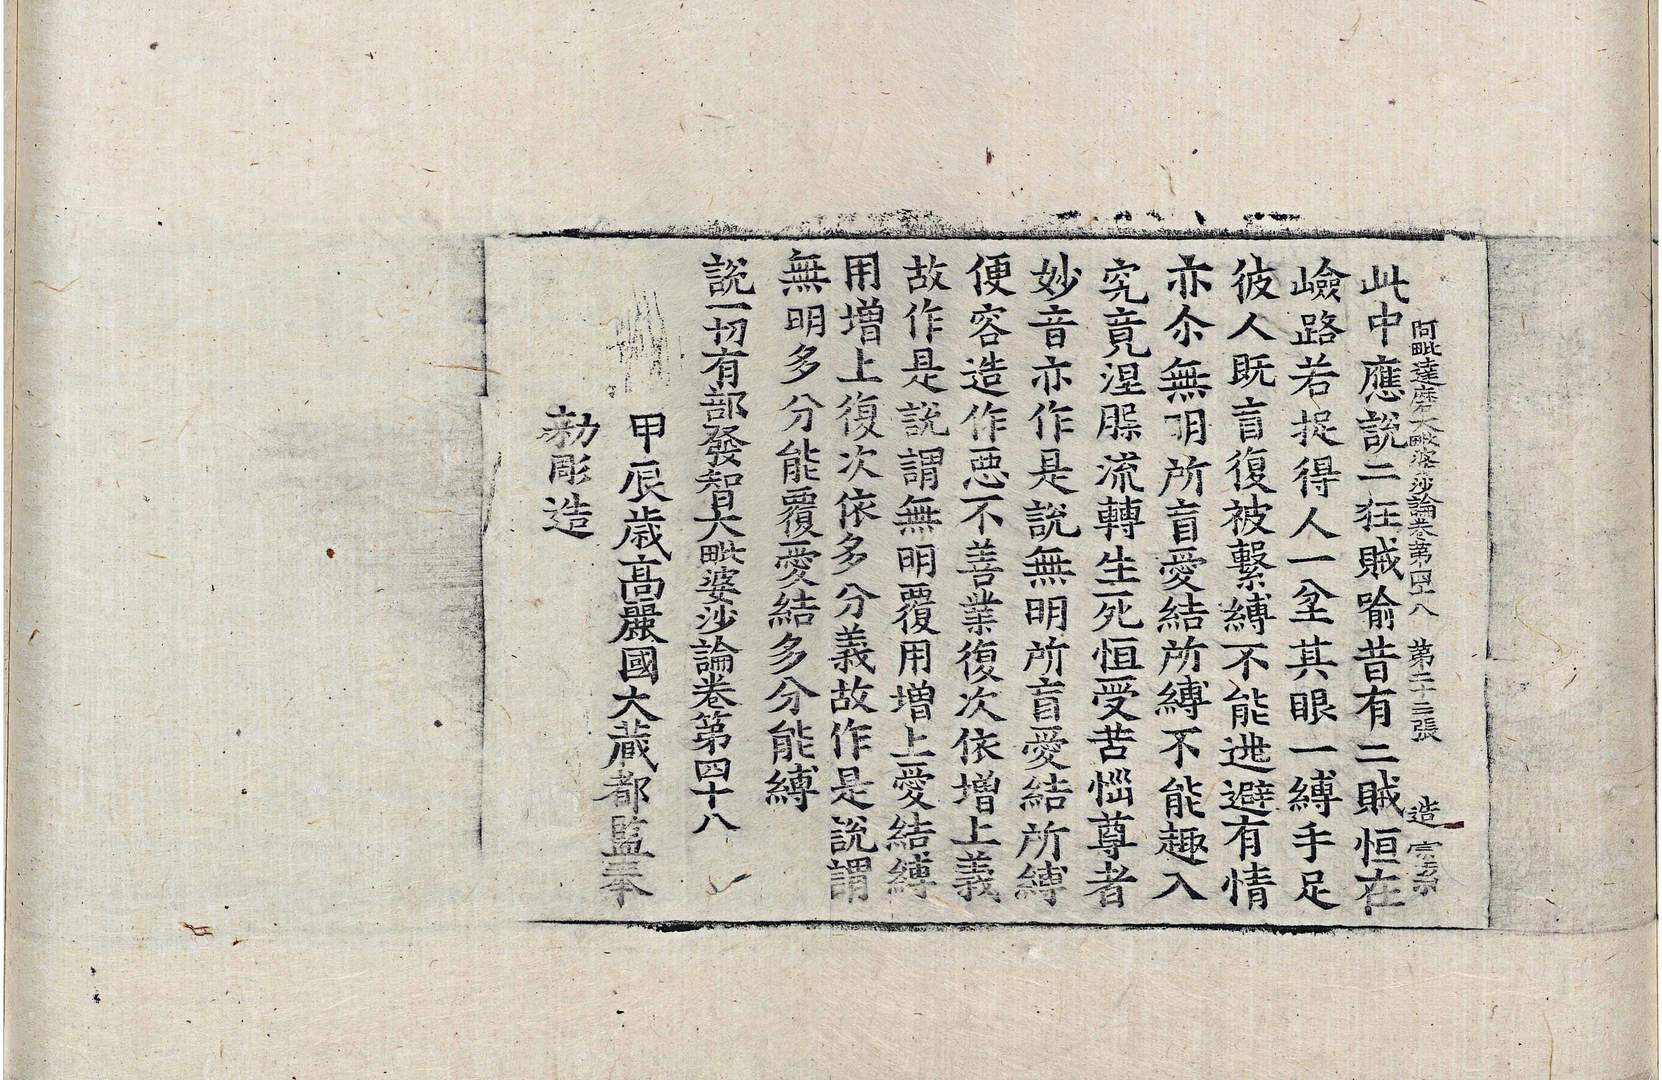 阿毗達磨大毗婆沙論卷第四十八 第二十三張 造
此中應說二狂賊喻昔有二賊恒在
嶮路若捉得人一坌其眼一縛手足
彼人旣盲復被繫縛不能逃避有情
亦尒無明所盲愛結所縛不能趣入
究竟涅槃流轉生死恒受苦惱尊者
妙音亦作是說無明所盲愛結所縛
便容造作惡不善業復次依增上義
故作是說謂無明覆用增上愛結縛
用增上復次依多分義故作是說謂
無明多分能覆愛結多分能縛
說一切有部發智大毗婆沙論卷第四十八
甲辰歲高麗國大藏都監奉
勅彫造